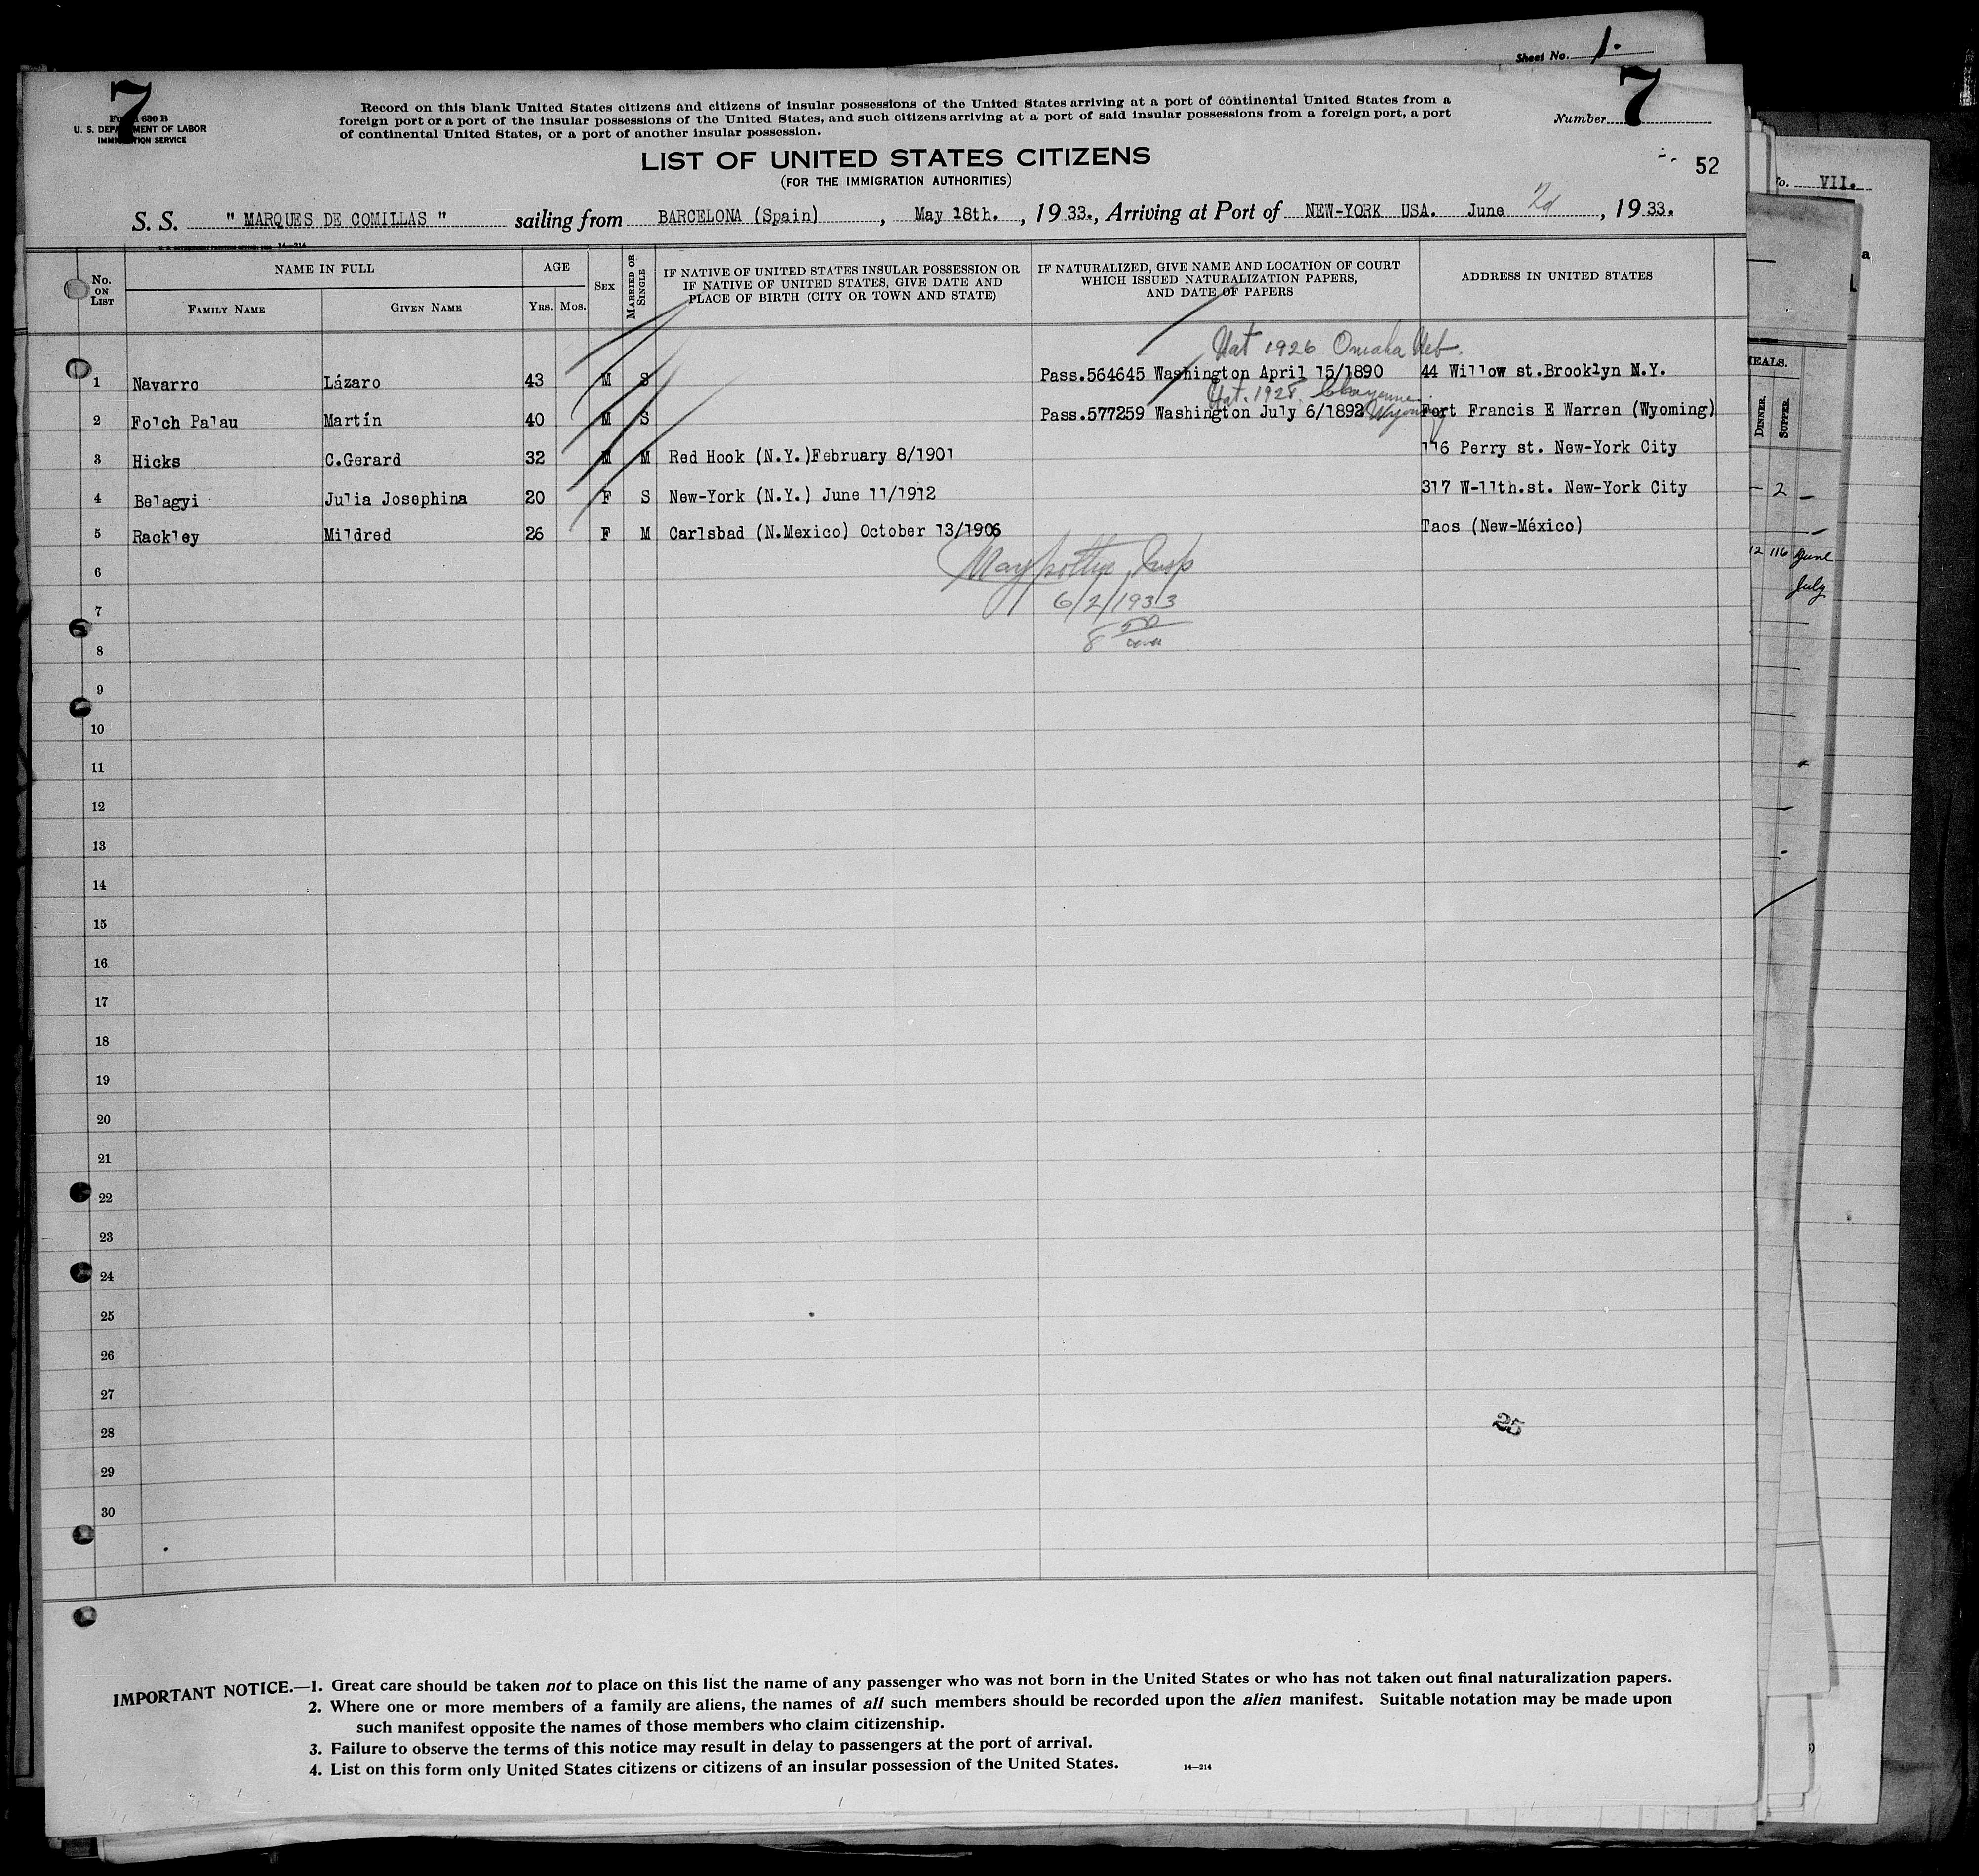 Sheet No. 1.
7
7
Form 630 B
U. S. DEPARTMENT OF LABOR
IMMIGRATION SERVICE
Record on this blank United States citizens and citizens of insular possessions of the United States arriving at a port of continental United States from a
foreign port or a port of the insular possessions of the United States, and such citizens arriving at a port of said insular possessions from a foreign port, a port
of continental United States, or a port of another insular possession.
Number
LIST OF UNITED STATES CITIZENS
(FOR THE IMMIGRATION AUTHORITIES)
52
VII.
S. S. " MARQUES DE COMILLAS " sailing from BARCELONA (Spain) , May 18th. , 19 33., Arriving at Port of NEW-YORK USA. June 2d , 19 33.
14—214
No. ON LIST
NAME IN FULL
FAMILY NAME
GIVEN NAME
AGE
YRS.
MOS.
SEX
MARRIED OR SINGLE
IF NATIVE OF UNITED STATES INSULAR POSSESSION OR
IF NATIVE OF UNITED STATES, GIVE DATE AND
PLACE OF BIRTH (CITY OR TOWN AND STATE)
IF NATURALIZED, GIVE NAME AND LOCATION OF COURT
WHICH ISSUED NATURALIZATION PAPERS,
AND DATE OF PAPERS
ADDRESS IN UNITED STATES
Nat 1926 Omaha Neb.
1 Navarro Lázaro 43 M S Pass.564645 Washington April 15/1890 44 Willow st.Brooklyn N.Y.
Nat. 1928 Cheyenne Wyoming
2 Folch Palau Martín 40 M S Pass.577259 Washington July 6/1892 Fort Francis E Warren (Wyoming)
3 Hicks C.Gerard 32 M M Red Hook (N.Y.)February 8/1901 116 Perry st. New-York City
4 Belagyi Julia Josephina 20 F S New-York (N.Y.) June 11/1912 317 W-11th.st. New-York City
5 Rackley Mildred 26 F M Carlsbad (N.Mexico) October 13/1906 Taos (New-México)
Insp
6/2/1933
8 50
6
7
8
9
10
11
12
13
14
15
16
17
18
19
20
21
22
23
24
25
26
27
28
29
30
25
MEALS.
DINNER.
SUPPER.
2
12 116 June
July
IMPORTANT NOTICE.—1. Great care should be taken not to place on this list the name of any passenger who was not born in the United States or who has not taken out final naturalization papers.
2. Where one or more members of a family are aliens, the names of all such members should be recorded upon the alien manifest. Suitable notation may be made upon
such manifest opposite the names of those members who claim citizenship.
3. Failure to observe the terms of this notice may result in delay to passengers at the port of arrival.
4. List on this form only United States citizens or citizens of an insular possession of the United States.
14—214